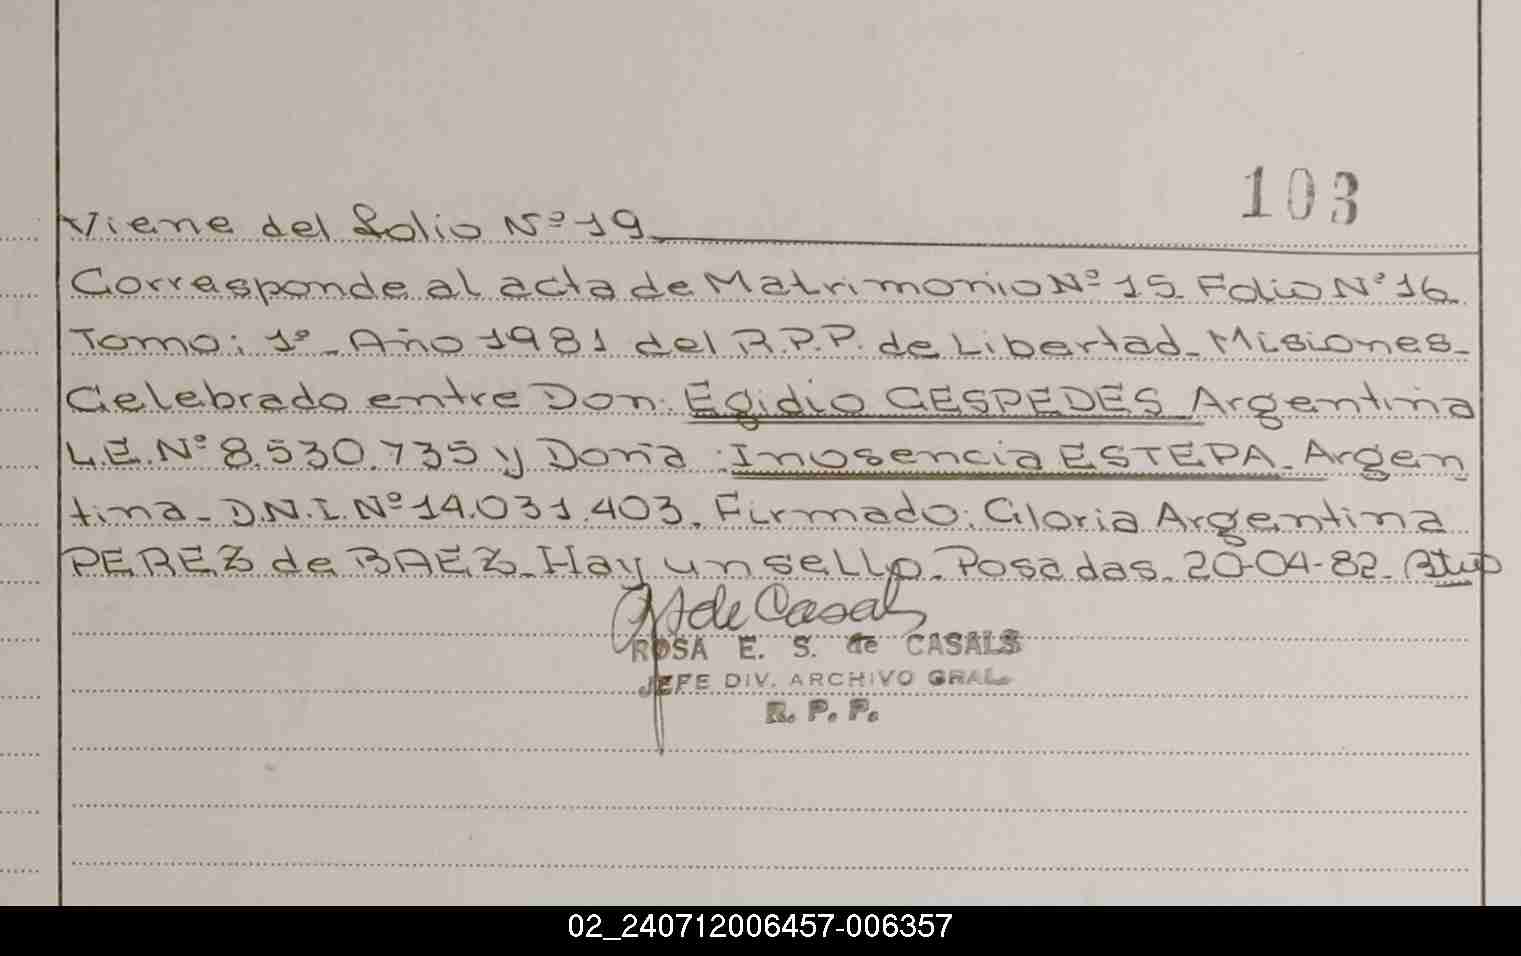 103
Viene del folio Nº 19
Corresponde al acta de Matrimonio Nº 15 Folio Nº 16
Tomo: 1º - Año 1981 del R.P.P. de Libertad - Misiones -
Celebrado entre Don: Egidio CESPEDES Argentina
L.E. Nº 8.530.735 y Doña: Inosencia ESTEPA - Argen
tina - D.N.I. Nº 14.031.403. Firmado: Gloria Argentina
PEREZ de BAEZ - Hay un sello. Posadas - 20-04-82 -
de Casals
ROSA E. S. de CASALS
JEFE DIV. ARCHIVO GRAL.
R. P. P.
02_240712006457-006357